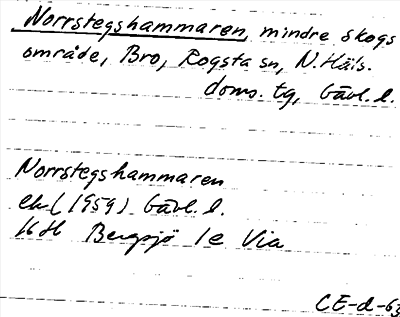 Norrstegshammaren, mindre skogs
område, Bro, Rogsta sn, N. Häls.
doms. tg, Gävl. l.
Norrstegshammaren
ek (1959) Gävl. l.
16H Bergsjö 1e Via
CE-d-63